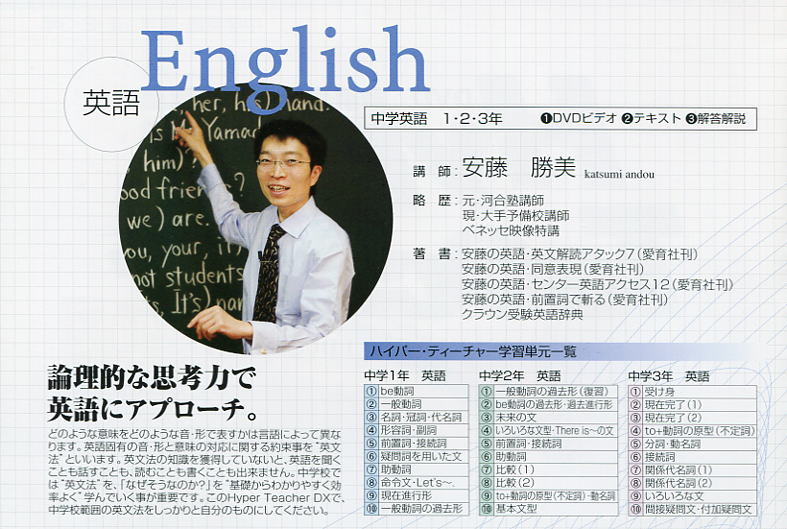 English
英語
her, his) hand.
is Yamad
him)?
ood friends?
we) are.
ou, your, it)
not students
s, It's) nam
中学英語 1・2・3年 ❶DVDビデオ ❷テキスト ❸解答解説
講 師：安藤 勝美 katsumi andou
略 歴：元・河合塾講師
現・大手予備校講師
ベネッセ映像特講
著 書：安藤の英語・英文解読アタック7（愛育社刊）
安藤の英語・同意表現（愛育社刊）
安藤の英語・センター英語アクセス12（愛育社刊）
安藤の英語・前置詞で斬る（愛育社刊）
クラウン受験英語辞典
論理的な思考力で
英語にアプローチ。
どのような意味をどのような音・形で表すかは言語によって異な
ります。英語固有の音・形と意味の対応に関する約束事を“英文
法”といいます。英文法の知識を獲得していないと、英語を聞く
ことも話すことも、読むことも書くことも出来ません。中学校で
は“英文法”を、「なぜそうなのか?」を“基礎からわかりやすく効
率よく”学んでいく事が重要です。このHyper Teacher DXで、
中学校範囲の英文法をしっかりと自分のものにしてください。
ハイパー・ティーチャー学習単元一覧
中学1年 英語
①be動詞
②一般動詞
③名詞・冠詞・代名詞
④形容詞・副詞
⑤前置詞・接続詞
⑥疑問詞を用いた文
⑦助動詞
⑧命令文・Let's〜.
⑨現在進行形
⑩一般動詞の過去形
中学2年 英語
①一般動詞の過去形（復習）
②be動詞の過去形・過去進行形
③未来の文
④いろいろな文型・There is〜の文
⑤前置詞・接続詞
⑥助動詞
⑦比較（1）
⑧比較（2）
⑨to+動詞の原型（不定詞）・動名詞
⑩基本文型
中学3年 英語
①受け身
②現在完了（1）
③現在完了（2）
④to+動詞の原型（不定詞）
⑤分詞・動名詞
⑥接続詞
⑦関係代名詞（1）
⑧関係代名詞（2）
⑨いろいろな文
⑩間接疑問文・付加疑問文